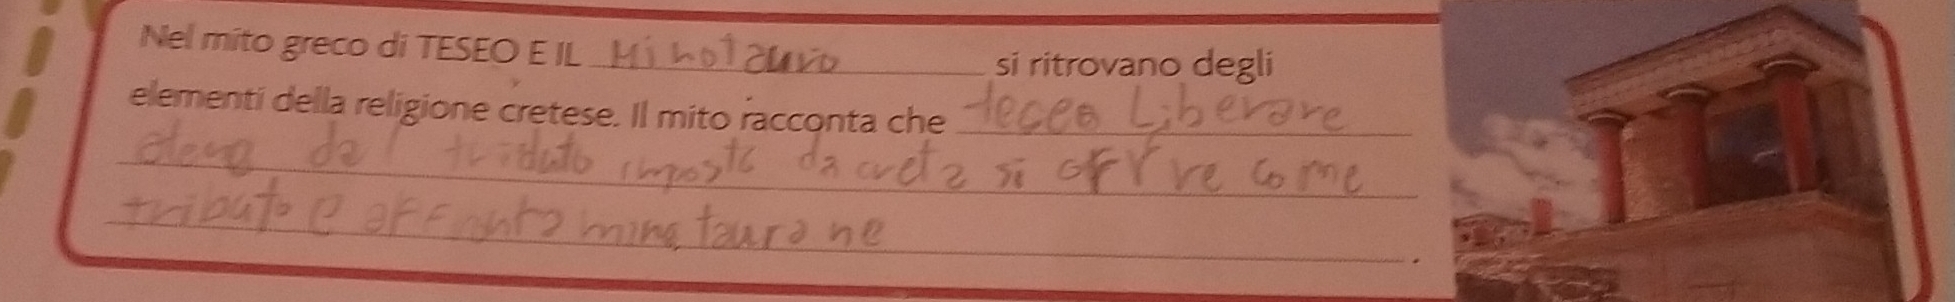 Nel mito greco di TESEO E IL Minotauro si ritrovano degli
elementi della religione cretese. Il mito racconta che teceo Liberare
dal tributo imposto da creta si offrve come
tributo e affronta minotauro ne
.